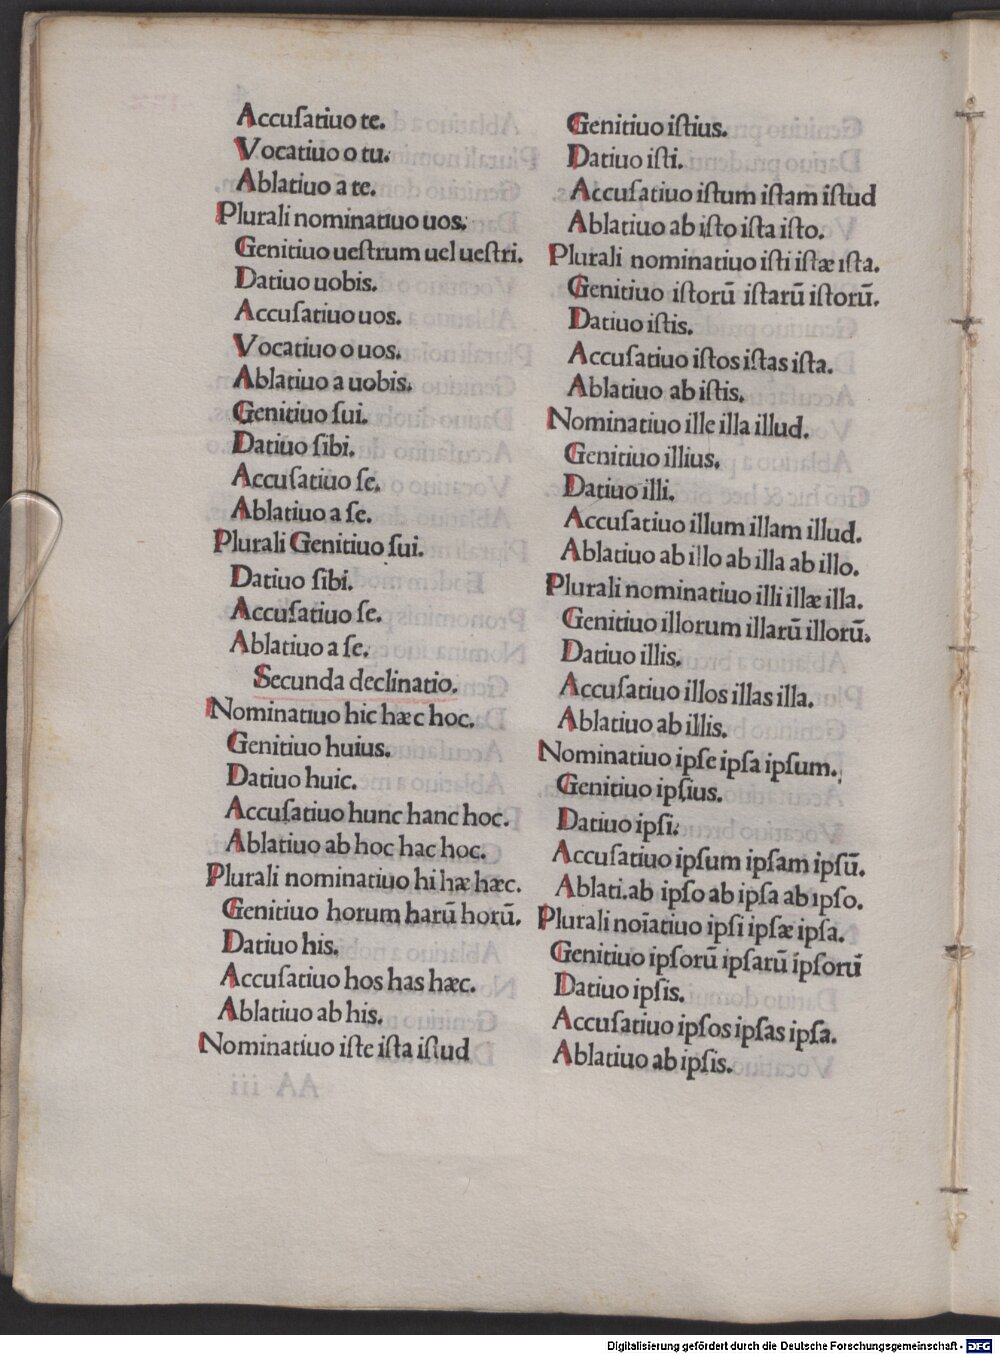 Accuſatiuo te.
Vocatiuo o tu.
Ablatiuo a te.
Plurali nominatiuo uos.
Genitiuo ueſtrum uel ueſtri.
Datiuo uobis.
Accuſatiuo uos.
Vocatiuo o uos.
Ablatiuo a uobis.
Genitiuo ſui.
Datiuo ſibi.
Accuſatiuo ſe.
Ablatiuo a ſe.
Plurali Genitiuo ſui.
Datiuo ſibi.
Accuſatiuo ſe.
Ablatiuo a ſe.
Secunda declinatio.
Nominatiuo hic hæc hoc.
Genitiuo huius.
Datiuo huic.
Accuſatiuo hunc hanc hoc.
Ablatiuo ab hoc hac hoc.
Plurali nominatiuo hi hæ hæc.
Genitiuo horum harū horū.
Datiuo his.
Accuſatiuo hos has hæc.
Ablatiuo ab his.
Nominatiuo iſte iſta iſtud
Genitiuo iſtius.
Datiuo iſti.
Accuſatiuo iſtum iſtam iſtud
Ablatiuo ab iſto iſta iſto.
Plurali nominatiuo iſti iſtæ iſta.
Genitiuo iſtorū iſtarū iſtorū.
Datiuo iſtis.
Accuſatiuo iſtos iſtas iſta.
Ablatiuo ab iſtis.
Nominatiuo ille illa illud.
Genitiuo illius.
Datiuo illi.
Accuſatiuo illum illam illud.
Ablatiuo ab illo ab illa ab illo.
Plurali nominatiuo illi illæ illa.
Genitiuo illorum illarū illorū.
Datiuo illis.
Accuſatiuo illos illas illa.
Ablatiuo ab illis.
Nominatiuo ipſe ipſa ipſum.
Genitiuo ipſius.
Datiuo ipſi.
Accuſatiuo ipſum ipſam ipſū.
Ablati.ab ipſo ab ipſa ab ipſo.
Plurali noīatiuo ipſi ipſæ ipſa.
Genitiuo ipſorū ipſarū ipſorū
Datiuo ipſis.
Accuſatiuo ipſos ipſas ipſa.
Ablatiuo ab ipſis.
Digitalisierung gefördert durch die Deutsche Forschungsgemeinschaft - DFG